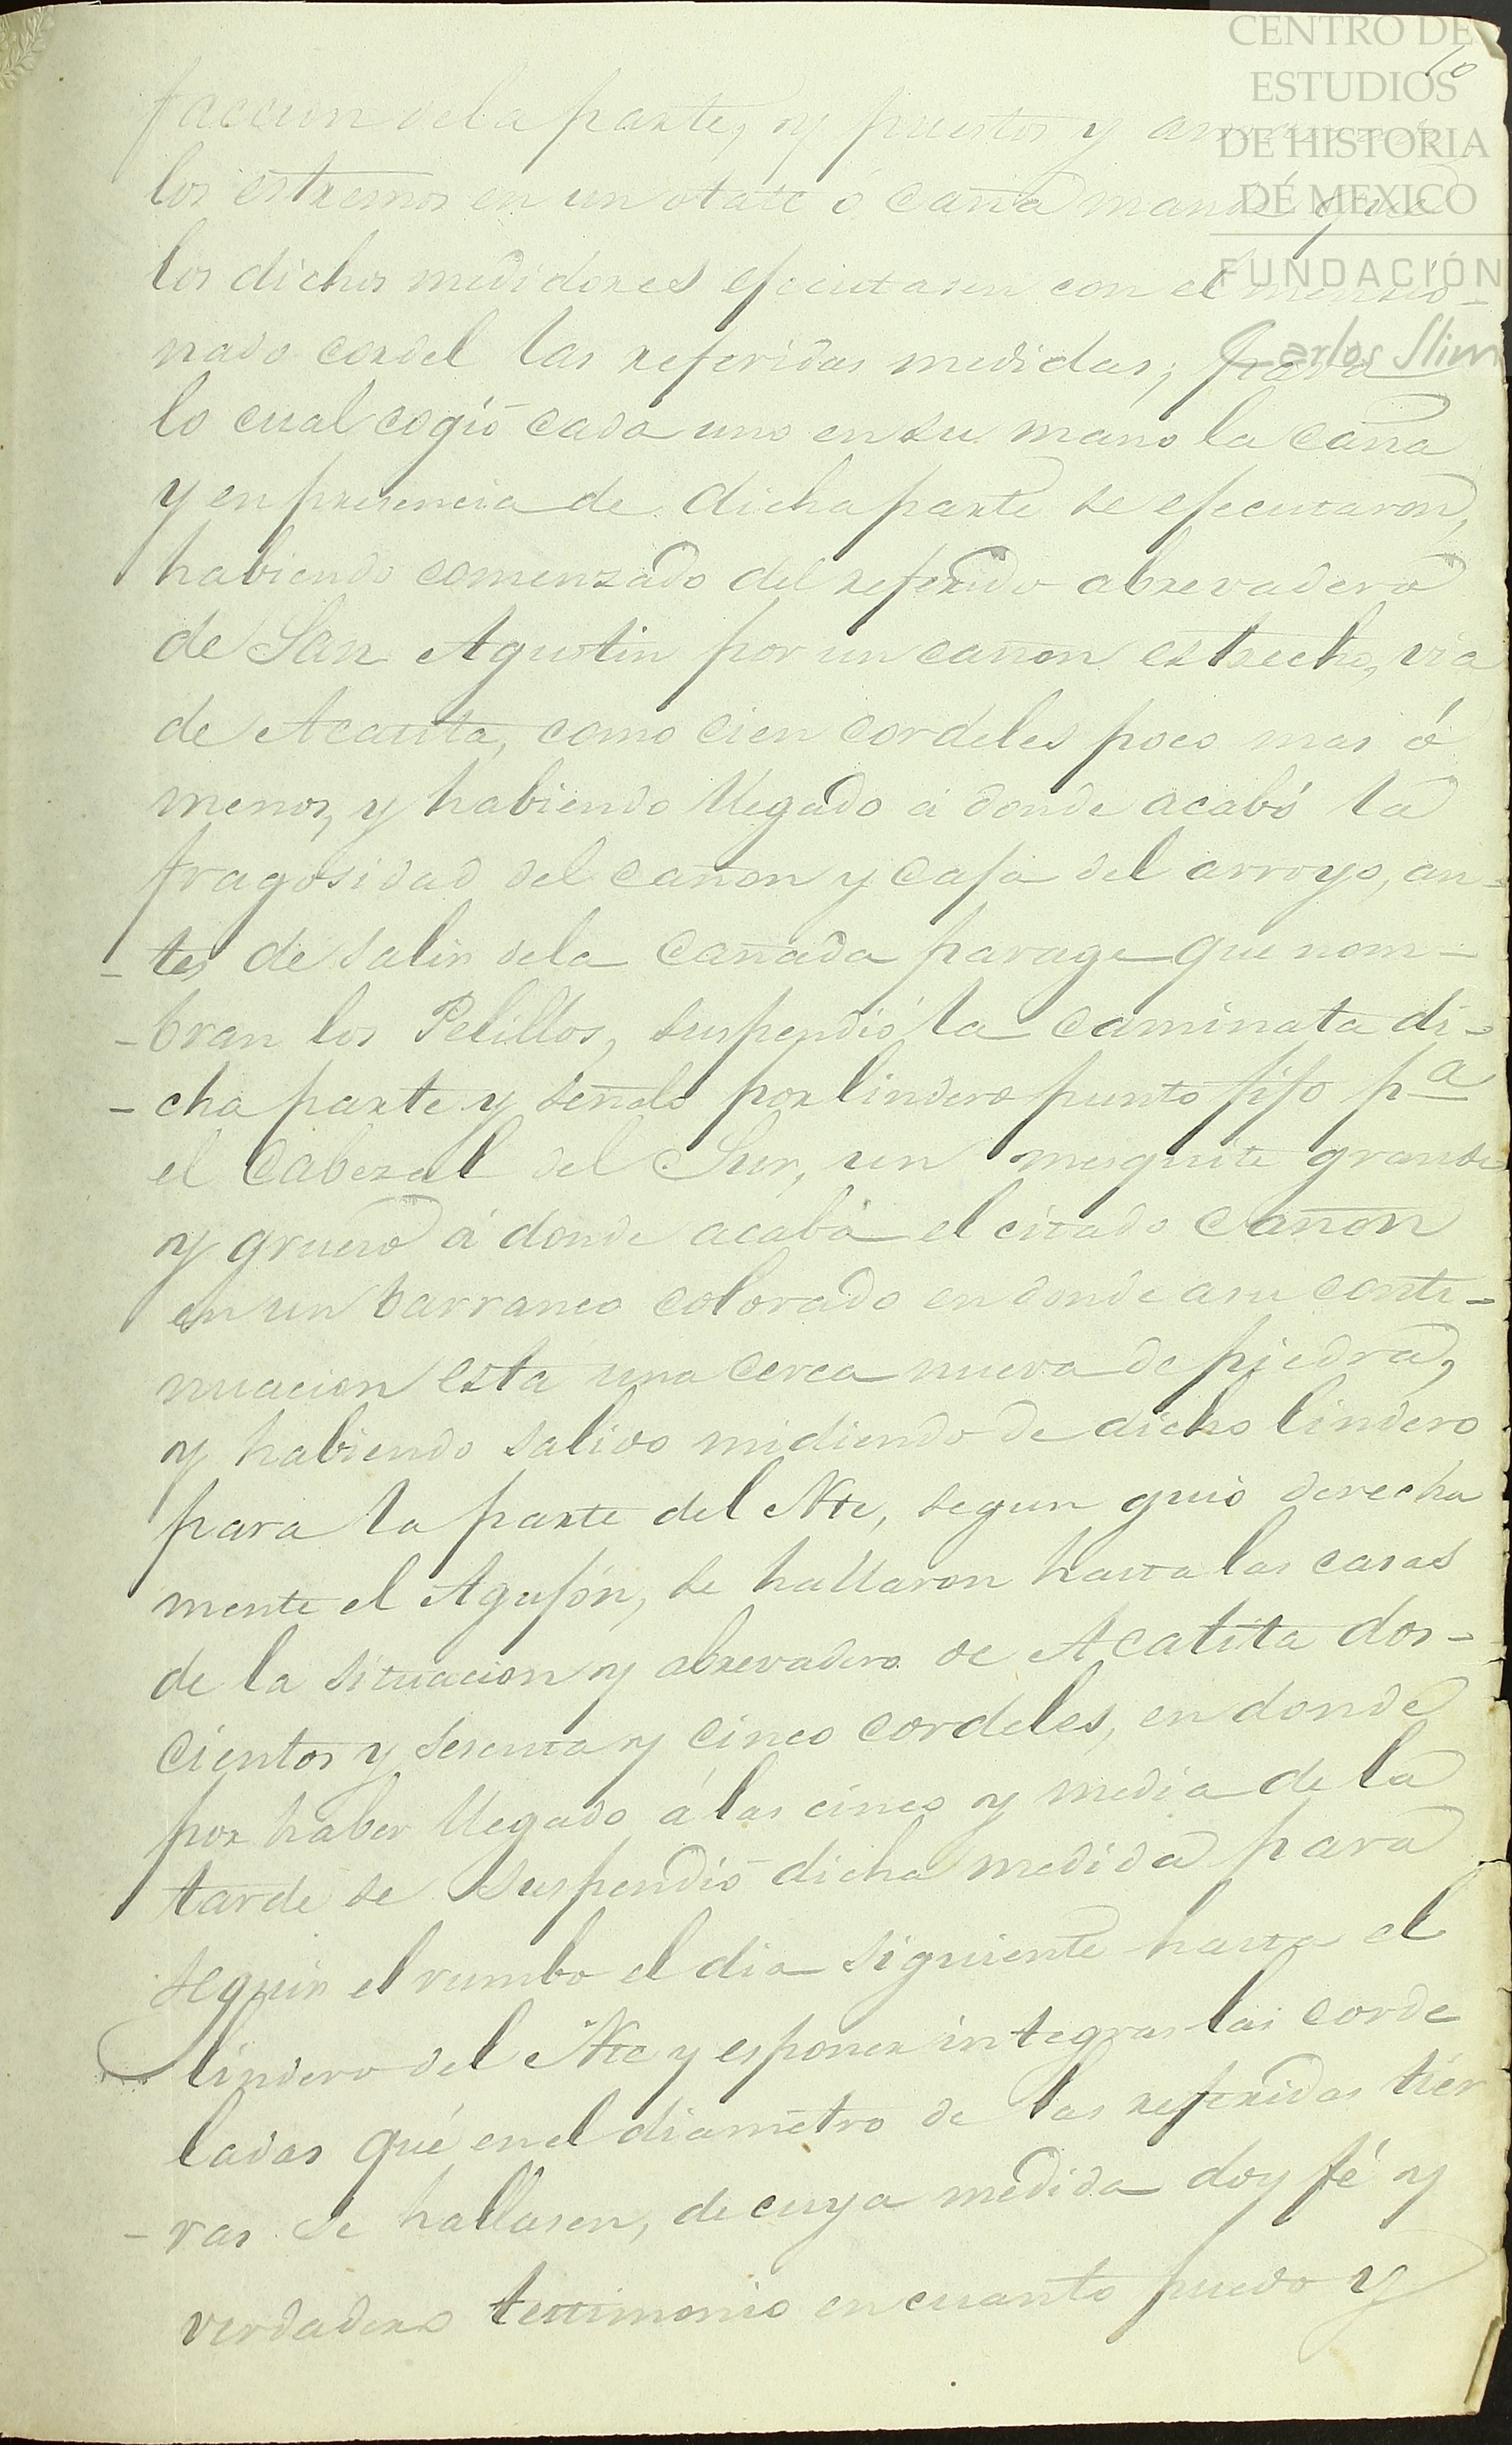 CENTRO DE
ESTUDIOS
DE HISTORIA
DE MEXICO
FUNDACIÓN
Carlos Slim
10
faccion dela parte, y puestos y
los estremos en un otate ó caña mandé que
los dichos medidores ejecutasen con el mensio-
nado cordel las referidas medidas, para
lo cual cogió cada uno en su mano la caña
y en presencia de dicha parte se ejecutaron,
habiendo comenzado del referido abrevadero
de San Agustin por un cañon estrecho, via
de Acatita, como cien cordeles poco mas ó
menos, y habiendo llegado á donde acabó la
fragosidad del cañon y caja del arroyo, an-
-tes de salir dela cañada parage que nom-
-bran los Pelillos, suspendió la caminata di-
-cha parte y señaló por lindero punto fijo pª
el cabezal del Sur, un mesquite grande
y grueso á donde acaba el citado cañon
en un barranco colorado en donde a su conti-
nuacion está una cerca nueva de piedra,
y habiendo salido midiendo de dicho lindero
para la parte del Nte, segun guió derecha
mente el Agujón, se hallaron hasta las casas
de la situacion y abrevadero de Acatita dos-
cientos y sesenta y cinco cordeles, en donde
por haber llegado á las cinco y media de la
tarde se suspendió dicha medida para
seguir el rumbo el dia siguiente hasta el
lindero del Nte y esponer integras las corde
ladas qué en el diametro de las referidas tier
-ras se hallasen, de cuya medida doy fé y
verdadero testimonio en cuanto puedo y